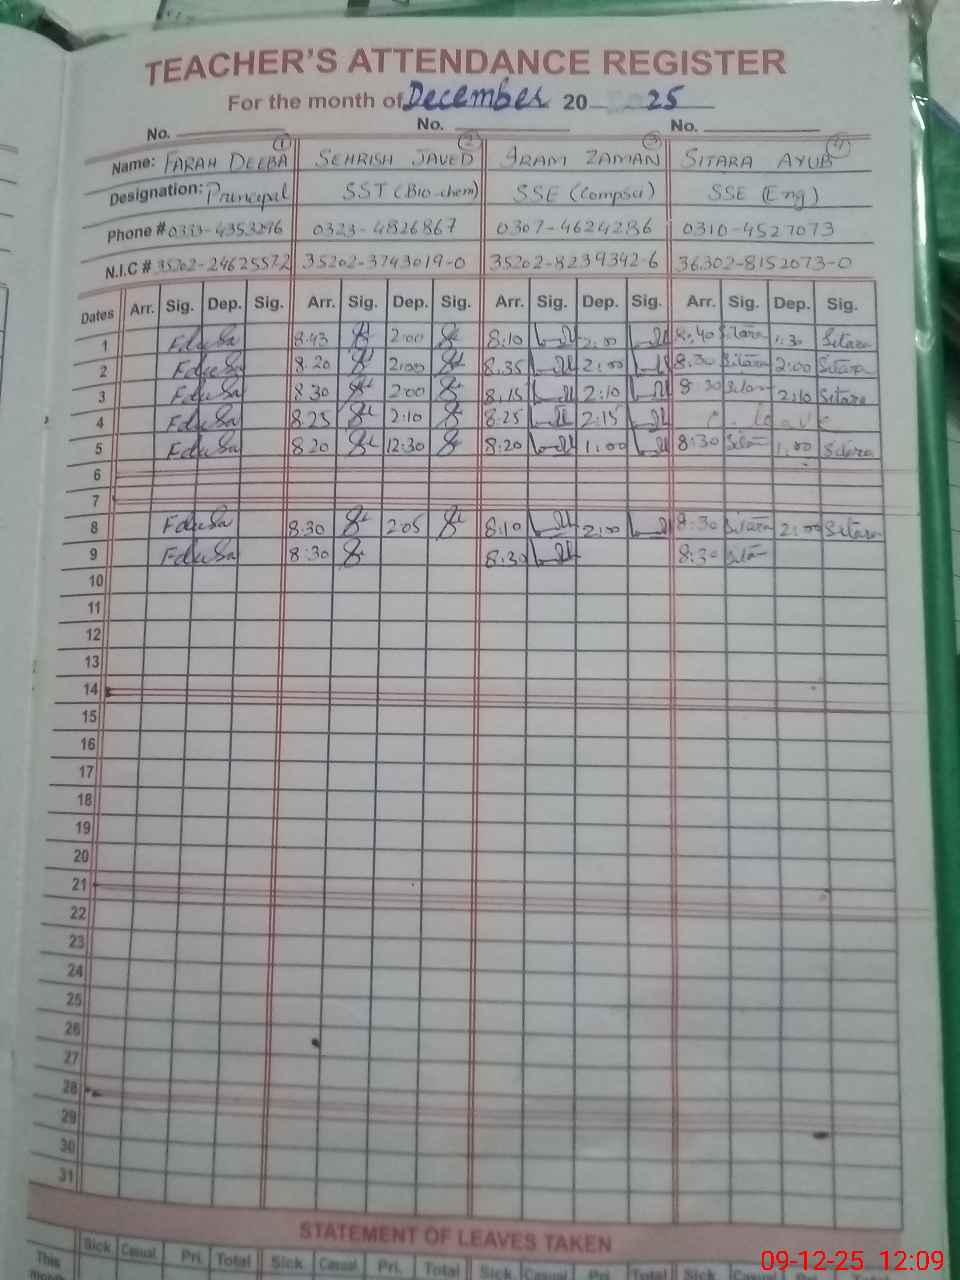 TEACHER'S ATTENDANCE REGISTER
For the month of December 20 25
No. No. No.
Name: FARAH DEEBA ① SEHRISH JAVED ② IRAM ZAMAN ③ SITARA AYUB ④
Designation: Principal SST (Bio-chem) SSE (Compsci) SSE (Eng)
Phone # 0333-4353296 0323-4826867 0307-4624286 0310-4527073
N.I.C # 35202-24625572 35202-3743019-0 35202-8239342-6 36302-8152073-0
Dates Arr. Sig. Dep. Sig. Arr. Sig. Dep. Sig. Arr. Sig. Dep. Sig. Arr. Sig. Dep. Sig.
1 8:43 2:00 8:10 2:00 8:40 Sitara 1:30 Sitara
2 8:20 2:00 8:35 2:00 8:30 Sitara 2:00 Sitara
3 8:30 2:00 8:15 2:10 8:30 Sitara 2:10 Sitara
4 8:25 2:10 8:25 2:15 C. leave
5 8:20 12:30 8:20 1:00 8:30 Sitara 1:00 Sitara
6
7
8 8:30 2:05 8:10 2:00 8:30 Sitara 2:00 Sitara
9 8:30 8:30 8:30 Sitara
10
11
12
13
14
15
16
17
18
19
20
21
22
23
24
25
26
27
28
29
30
31
STATEMENT OF LEAVES TAKEN
Sick Casual Pri. Total Sick. Casual Pri. Total Sick. Casual Pri. Total Sick. Casual Pri. Total
This
month
09-12-25 12:09